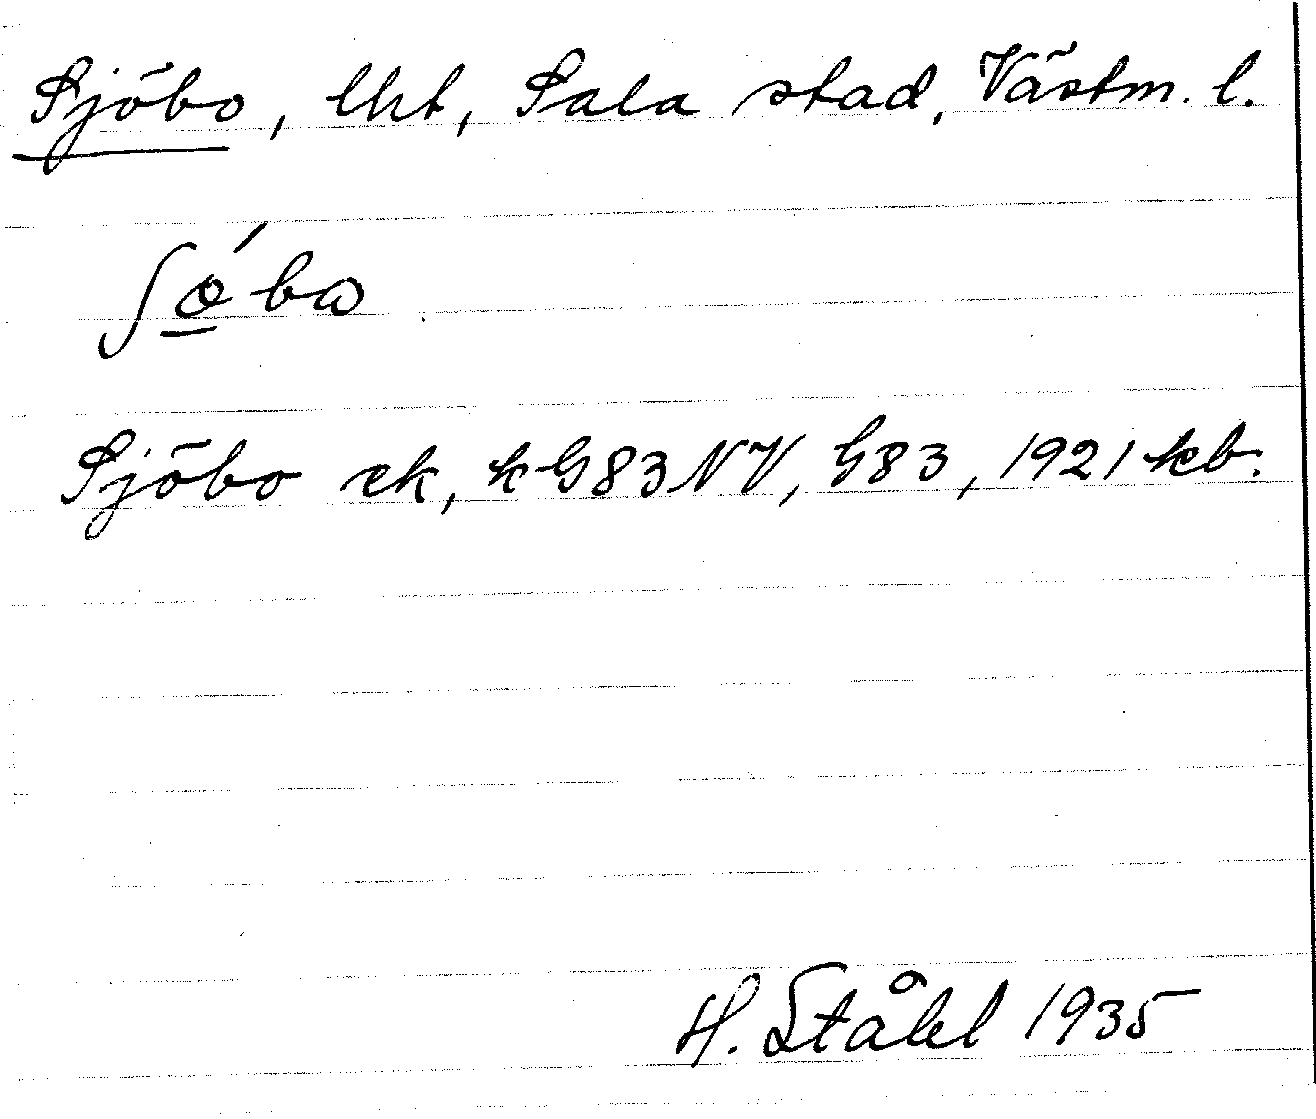 Sjöbo, lht, Sala stad, Västm. l.
ʃǫ́bɷ
Sjöbo ek, k G83NV, G83, 1921 kb.
H. Ståhl 1935